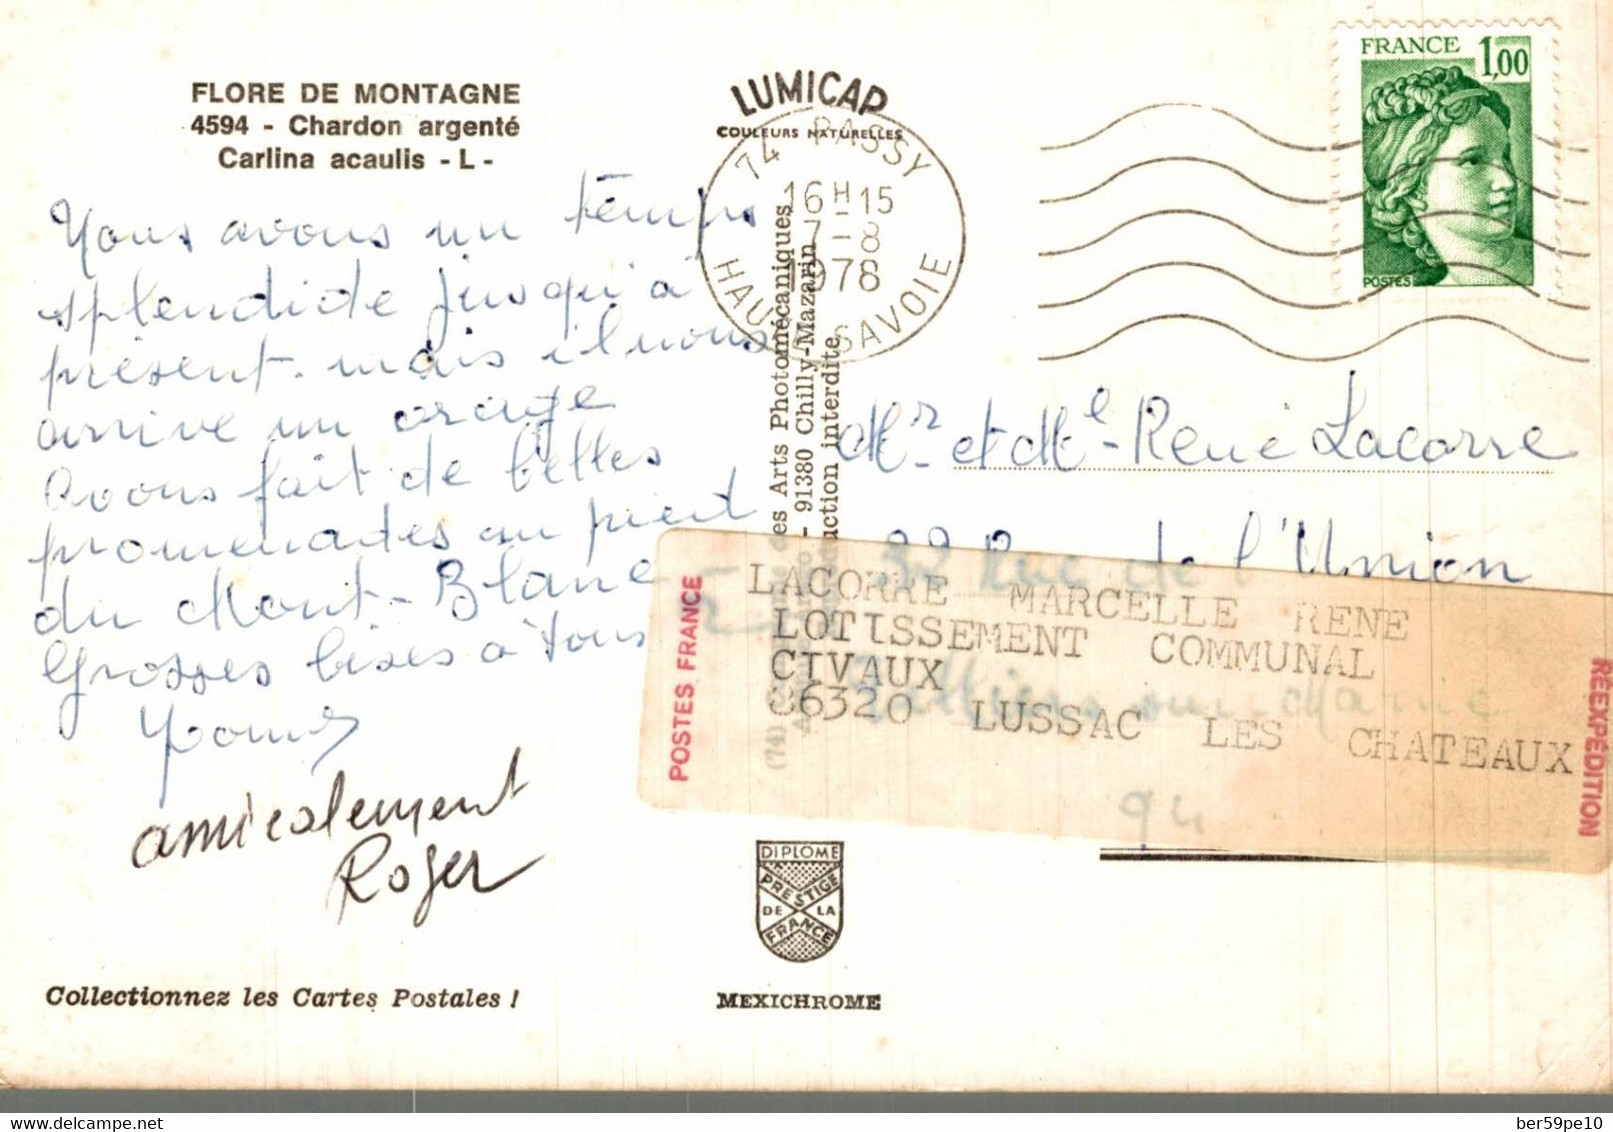 FLORE DE MONTAGNE
4594 - Chardon argenté
Carlina acaulis - L -
Nous avons un temps
splendide jusqu'à
présent. mais il nous
arrive un orage
Avons fait de belles
promenades au pied
du Mont-Blanc -
Grosses bises à tous
amicalement
Roger
Collectionnez les Cartes Postales !
LUMICAP
COULEURS NATURELLES
74 PASSY
16H15
7-8
1978
HAUTE SAVOIE
es Arts Photomécaniques
- 91380 Chilly-Mazarin
uction interdite
FRANCE 1,00
POSTES
Mr et Me René Lacorre
32 Rue de l'Union
Villiers sur-Marne
94
POSTES FRANCE
LACORRE MARCELLE RENE
LOTISSEMENT COMMUNAL
CIVAUX
86320 LUSSAC LES CHATEAUX
RÉEXPÉDITION
DIPLOME
PRESTIGE
DE LA
FRANCE
MEXICHROME
ber59pe10